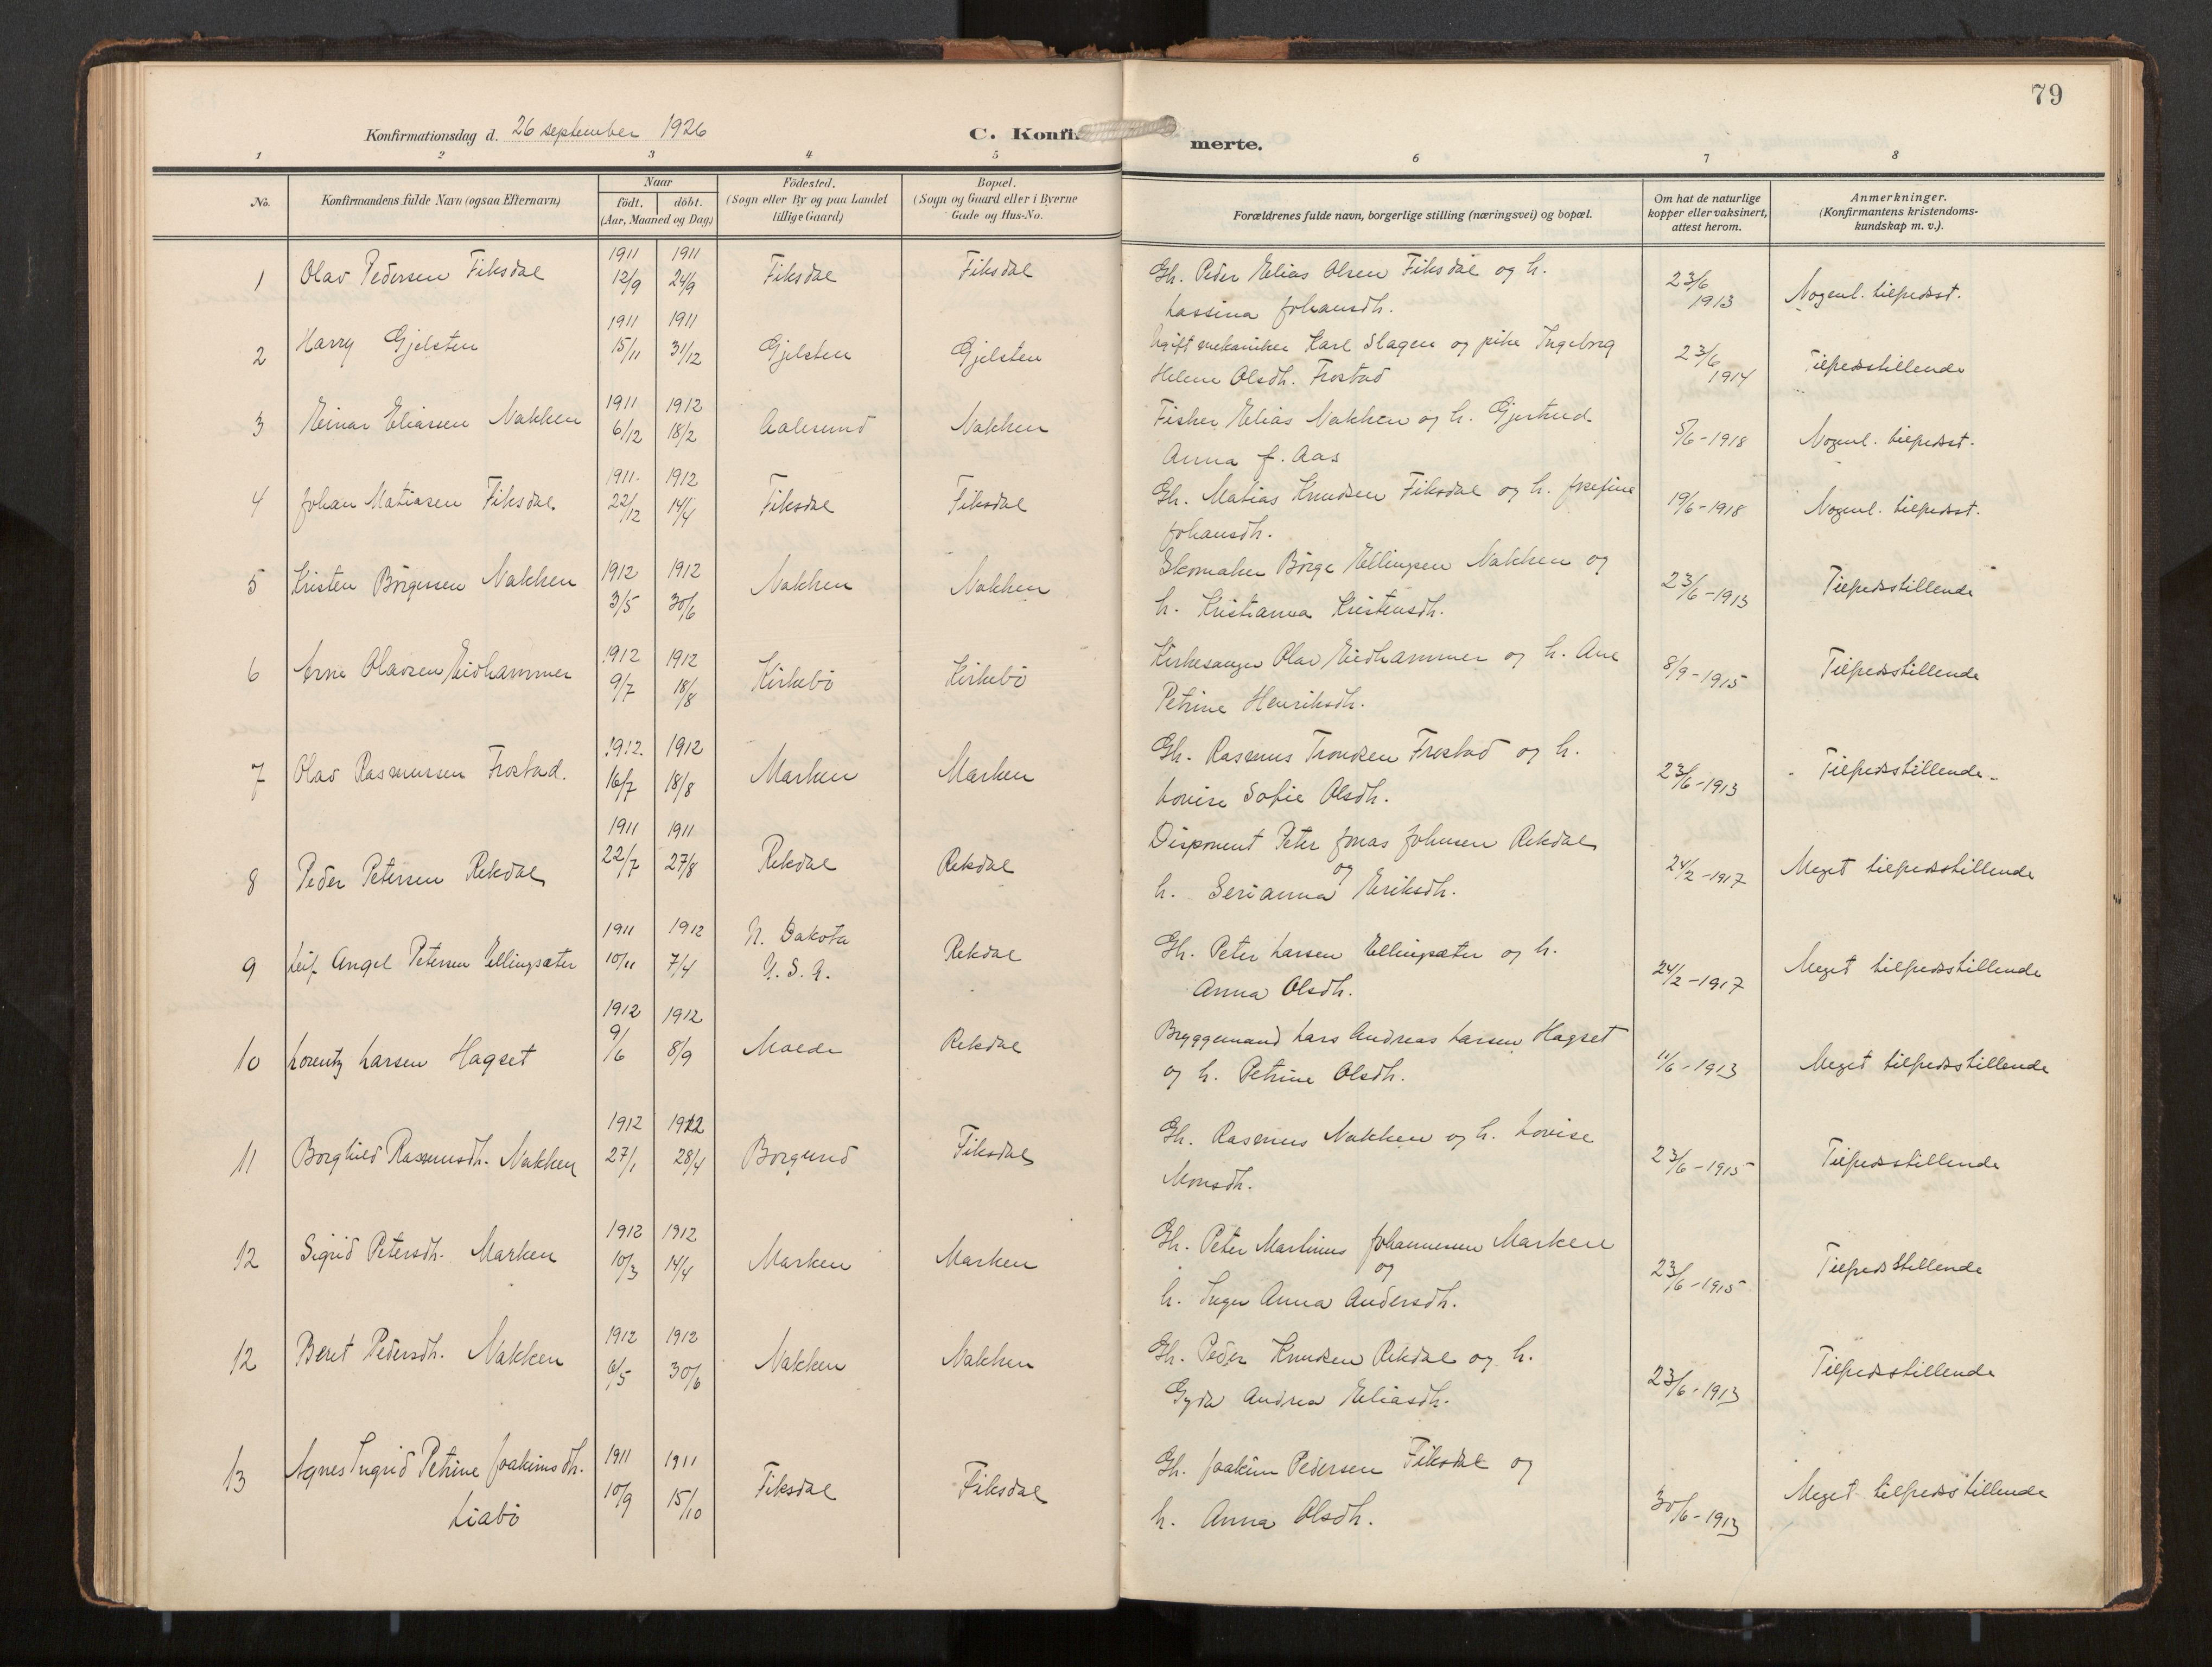 79
Konfirmationsdag d. 26 september 1926
C. Konfir
merte.
1 2 3 4 5 6 7 8
No.
Konfirmandens fulde Navn (ogsaa Efternavn)
Naar
födt. döbt.
(Aar, Maaned og Dag)
Födested.
(Sogn eller By og paa Landet
tillige Gaard)
Bopæl.
(Sogn og Gaard eller i Byerne
Gade og Hus-No.
Forældrenes fulde navn, borgerlige stilling (næringsvei) og bopæl.
Om hat de naturlige
kopper eller vaksinert,
attest herom.
Anmerkninger.
(Konfirmantens kristendoms-
kundskap m. v.).
1 Olav Pedersen Fiksdal 1911 12/9 1911 24/9 Fiksdal Fiksdal
Gh. Peder Elias Olsen Fiksdal og h.
Lassina Johansdh.
23/6 1913 Nogenl. tilfredsst.
2 Harry Gjelsten 1911 15/11 1911 31/12 Gjelsten Gjelsten
Ugift mekaniker Karl Slagen og pike Ingeborg
Helene Olsdh. Frostad
23/6 1914 Tilfredsstillende
3 Einar Eliassen Nakken 1911 6/12 1912 18/2 Aalesund Nakken
Fisker Elias Nakken og h. Gjertrud
Anna f. Aas
5/6-1918 Nogenl. tilfredsst.
4 Johan Matiasen Fiksdal 1911 22/12 1912 14/4 Fiksdal Fiksdal
Gh. Matias Knudsen Fiksdal og h. Josefine
Johansdh.
19/6-1918 Nogenl. tilfredsst.
5 Kristen Börgesen Nakken 1912 3/5 1912 30/6 Nakken Nakken
Skomaker Börge Ellingsen Nakken og
h. Kristianna Kristensdh.
23/6-1913 Tilfredsstillende
6 Arne Olavsen Eidhammer 1912 9/7 1912 18/8 Kirkebö Kirkebö
Kirkesanger Olav Eidhammer og h. Ane
Petrine Henriksdh.
8/9-1915 Tilfredsstillende
7 Olav Rasmussen Frostad. 1912 16/7 1912 18/8 Marken Marken
Gh. Rasmus Trondsen Frostad og h.
Lovise Sofie Olsdh.
23/6-1913 Tilfredsstillende
8 Peder Petersen Rekdal 1911 22/7 1911 27/8 Rekdal Rekdal
Disponent Peter Jonas Johnsen Rekdal
og
h. Serianna Eriksdh.
24/2-1917 Meget tilfredsstillende
9 Leif Angel Petersen Ellingsæter 1911 10/11 1912 7/4 N. Dakota
U. S. A. Rekdal
Gh. Peter Larsen Ellingsæter og h.
Anna Olsdh.
24/2-1917 Meget tilfredsstillende
10 Lorentz Larsen Hagset 1912 9/6 1912 8/9 Molde Rekdal
Bryggemand Lars Andreas Larsen Hagset
og h. Petrine Olsdh.
11/6-1913 Meget tilfredsstillende
11 Borghild Rasmusdh. Nakken 1912 27/1 1912 28/4 Borgund Fiksdal
Gh. Rasmus Nakken og h. Lovise
Monsdh.
23/6-1915 Tilfredsstillende
12 Sigrid Petersdh. Marken 1912 10/3 1912 14/4 Marken Marken
Gh. Peter Martinus Johannesen Marken
og
h. Inger Anna Andersdh.
23/6-1915 Tilfredsstillende
12 Beret Pedersdh. Nakken 1912 6/5 1912 30/6 Nakken Nakken
Gh. Peder Knudsen Rekdal og h.
Gyda Andrea Eliasdh.
23/6-1913 Tilfredsstillende
13 Agnes Ingrid Petrine Joakimsdh.
Liabö 1911 10/9 1911 15/10 Fiksdal Fiksdal
Gh. Joakim Pedersen Fiksdal og
h. Anna Olsdh.
30/6-1913 Meget tilfredsstillende